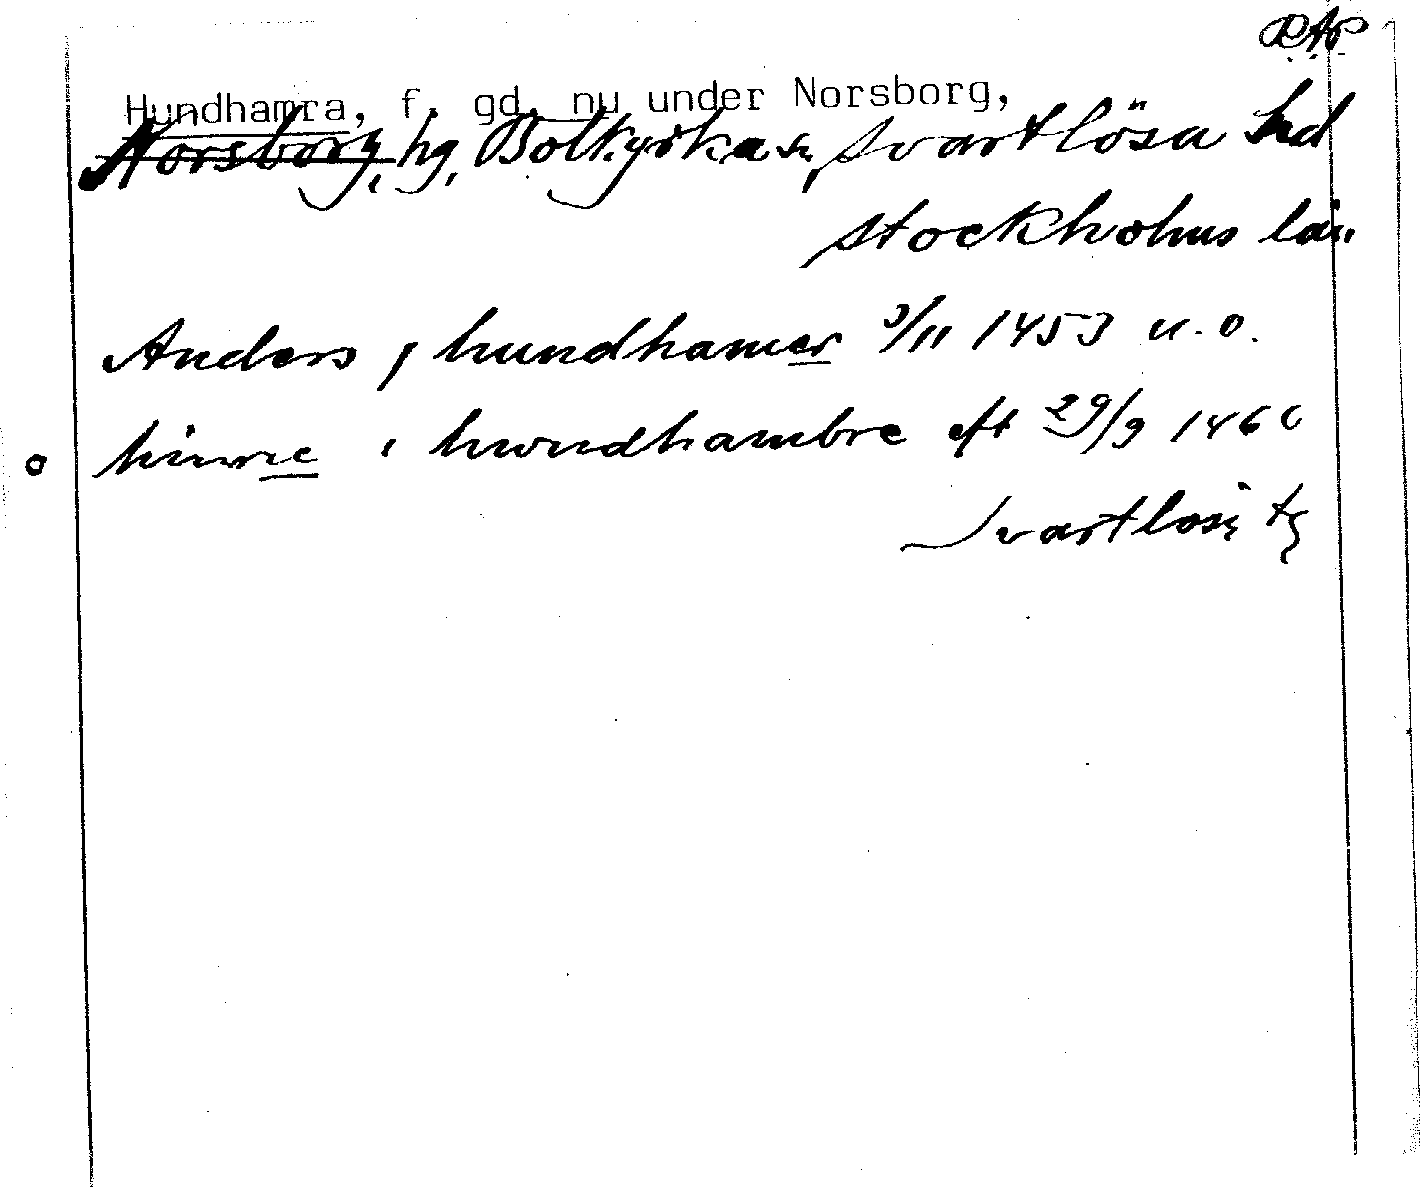 RAP
Hundhamra, f. gd. nu under Norsborg,
Norsborg, hg, Botkyrka sn, Svartlösa hd
Stockholms län
Anders j hundhamer 3/11 1453 u.o.
hinrc i hwndhambre eft 29/9 1460
Svartlösa tg